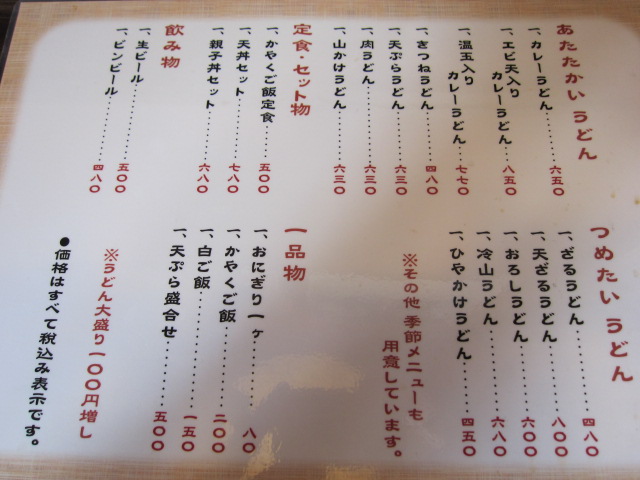 あたたかいうどん
一、カレーうどん…………六五〇
一、エビ天入り
カレーうどん……八五〇
一、温玉入り
カレーうどん……七七〇
一、きつねうどん…………四八〇
一、天ぷらうどん…………六三〇
一、肉うどん…………六三〇
一、山かけうどん…………六三〇
定食・セット物
一、かやくご飯定食………五〇〇
一、天丼セット…………七八〇
一、親子丼セット…………六八〇
飲み物
一、生ビール…………五〇〇
一、ビンビール…………四八〇
つめたいうどん
一、ざるうどん…………四八〇
一、天ざるうどん…………八〇〇
一、おろしうどん…………六〇〇
一、冷山うどん…………六八〇
一、ひやかけうどん…………四五〇
※その他 季節メニューも
用意しています。
一品物
一、おにぎり一ヶ…………八〇
一、かやくご飯…………二〇〇
一、白ご飯…………一五〇
一、天ぷら盛合せ…………五〇〇
※うどん大盛り一〇〇円増し
●価格はすべて税込み表示です。